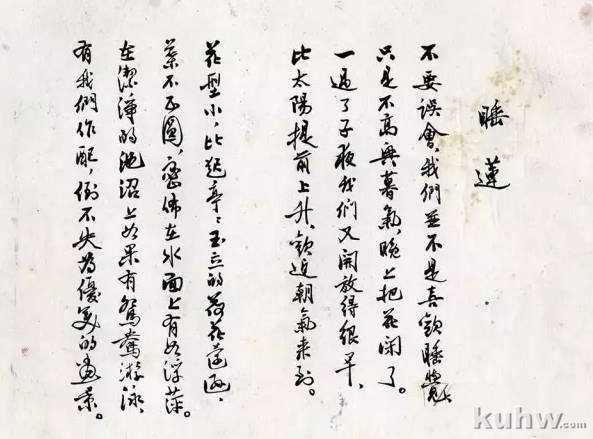 睡蓮
不要誤會，我們並不是喜歡睡覺，
只是不高興暮氣，晚上把花閉了。
一過了子夜我們又開放得很早，
比太陽提前上升，歡迎朝氣來到。
花型小，比起亭亭玉立的荷花遜，
葉不正圓，密佈在水面上有如浮萍。
在潔淨的池沼上如果有鴛鴦游泳，
有我們作配，倒不失為優美的畫景。
kuhw.com